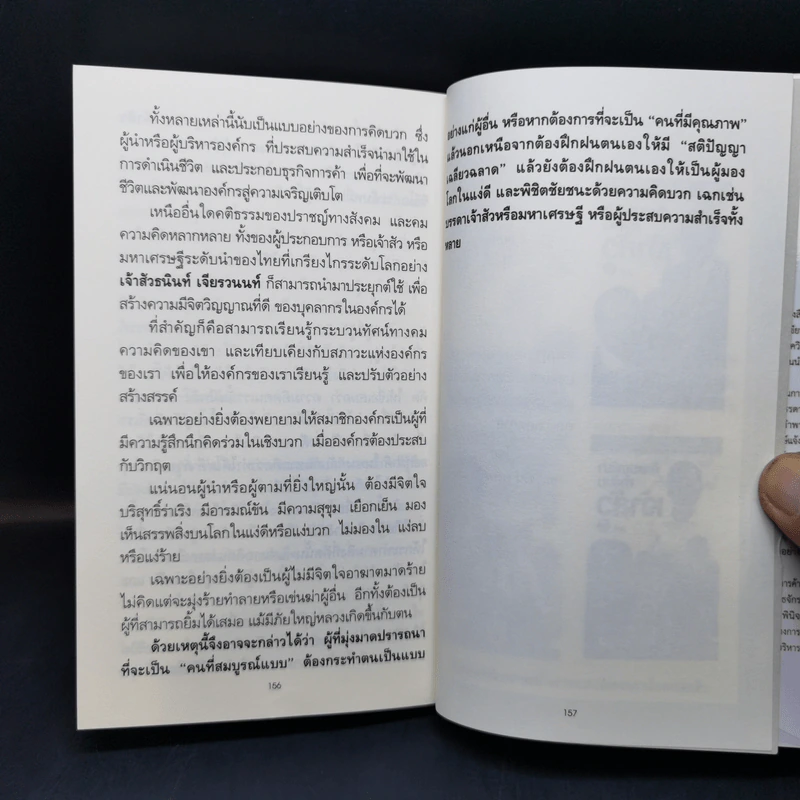 ทั้งหลายเหล่านี้นับเป็นแบบอย่างของการคิดบวก ซึ่ง
ผู้นำหรือผู้บริหารองค์กร ที่ประสบความสำเร็จนำมาใช้ใน
การดำเนินชีวิต และประกอบธุรกิจการค้า เพื่อที่จะพัฒนา
ชีวิตและพัฒนาองค์กรสู่ความเจริญเติบโต
เหนืออื่นใดคติธรรมของปราชญ์ทางสังคม และคม
ความคิดหลากหลาย ทั้งของผู้ประกอบการ หรือเจ้าสัว หรือ
มหาเศรษฐีระดับนำของไทยที่เกรียงไกรระดับโลกอย่าง
เจ้าสัวธนินท์ เจียรวนนท์ ก็สามารถนำมาประยุกต์ใช้ เพื่อ
สร้างความมีจิตวิญญาณที่ดี ของบุคลากรในองค์กรได้
ที่สำคัญก็คือสามารถเรียนรู้กระบวนทัศน์ทางคม
ความคิดของเขา และเทียบเคียงกับสภาวะแห่งองค์กร
ของเรา เพื่อให้องค์กรของเราเรียนรู้ และปรับตัวอย่าง
สร้างสรรค์
เฉพาะอย่างยิ่งต้องพยายามให้สมาชิกองค์กรเป็นผู้ที่
มีความรู้สึกนึกคิดร่วมในเชิงบวก เมื่อองค์กรต้องประสบ
กับวิกฤต
แน่นอนผู้นำหรือผู้ตามที่ยิ่งใหญ่นั้น ต้องมีจิตใจ
บริสุทธิ์ร่าเริง มีอารมณ์ขัน มีความสุขุม เยือกเย็น มอง
เห็นสรรพสิ่งบนโลกในแง่ดีหรือแง่บวก ไม่มองใน แง่ลบ
หรือแง่ร้าย
เฉพาะอย่างยิ่งต้องเป็นผู้ไม่มีจิตใจอาฆาตมาดร้าย
ไม่คิดแต่จะมุ่งร้ายทำลายหรือเข่นฆ่าผู้อื่น อีกทั้งต้องเป็น
ผู้ที่สามารถยิ้มได้เสมอ แม้มีภัยใหญ่หลวงเกิดขึ้นกับตน
ด้วยเหตุนี้จึงอาจจะกล่าวได้ว่า ผู้ที่มุ่งมาดปรารถนา
ที่จะเป็น “คนที่สมบูรณ์แบบ” ต้องกระทำตนเป็นแบบ
156
อย่างแก่ผู้อื่น หรือหากต้องการที่จะเป็น “คนที่มีคุณภาพ”
แล้วนอกเหนือจากต้องฝึกฝนตนเองให้มี “สติปัญญา
เฉลียวฉลาด” แล้วยังต้องฝึกฝนตนเองให้เป็นผู้มอง
โลกในแง่ดี และพิชิตชัยชนะด้วยความคิดบวก เฉกเช่น
บรรดาเจ้าสัวหรือมหาเศรษฐี หรือผู้ประสบความสำเร็จทั้ง
หลาย
157